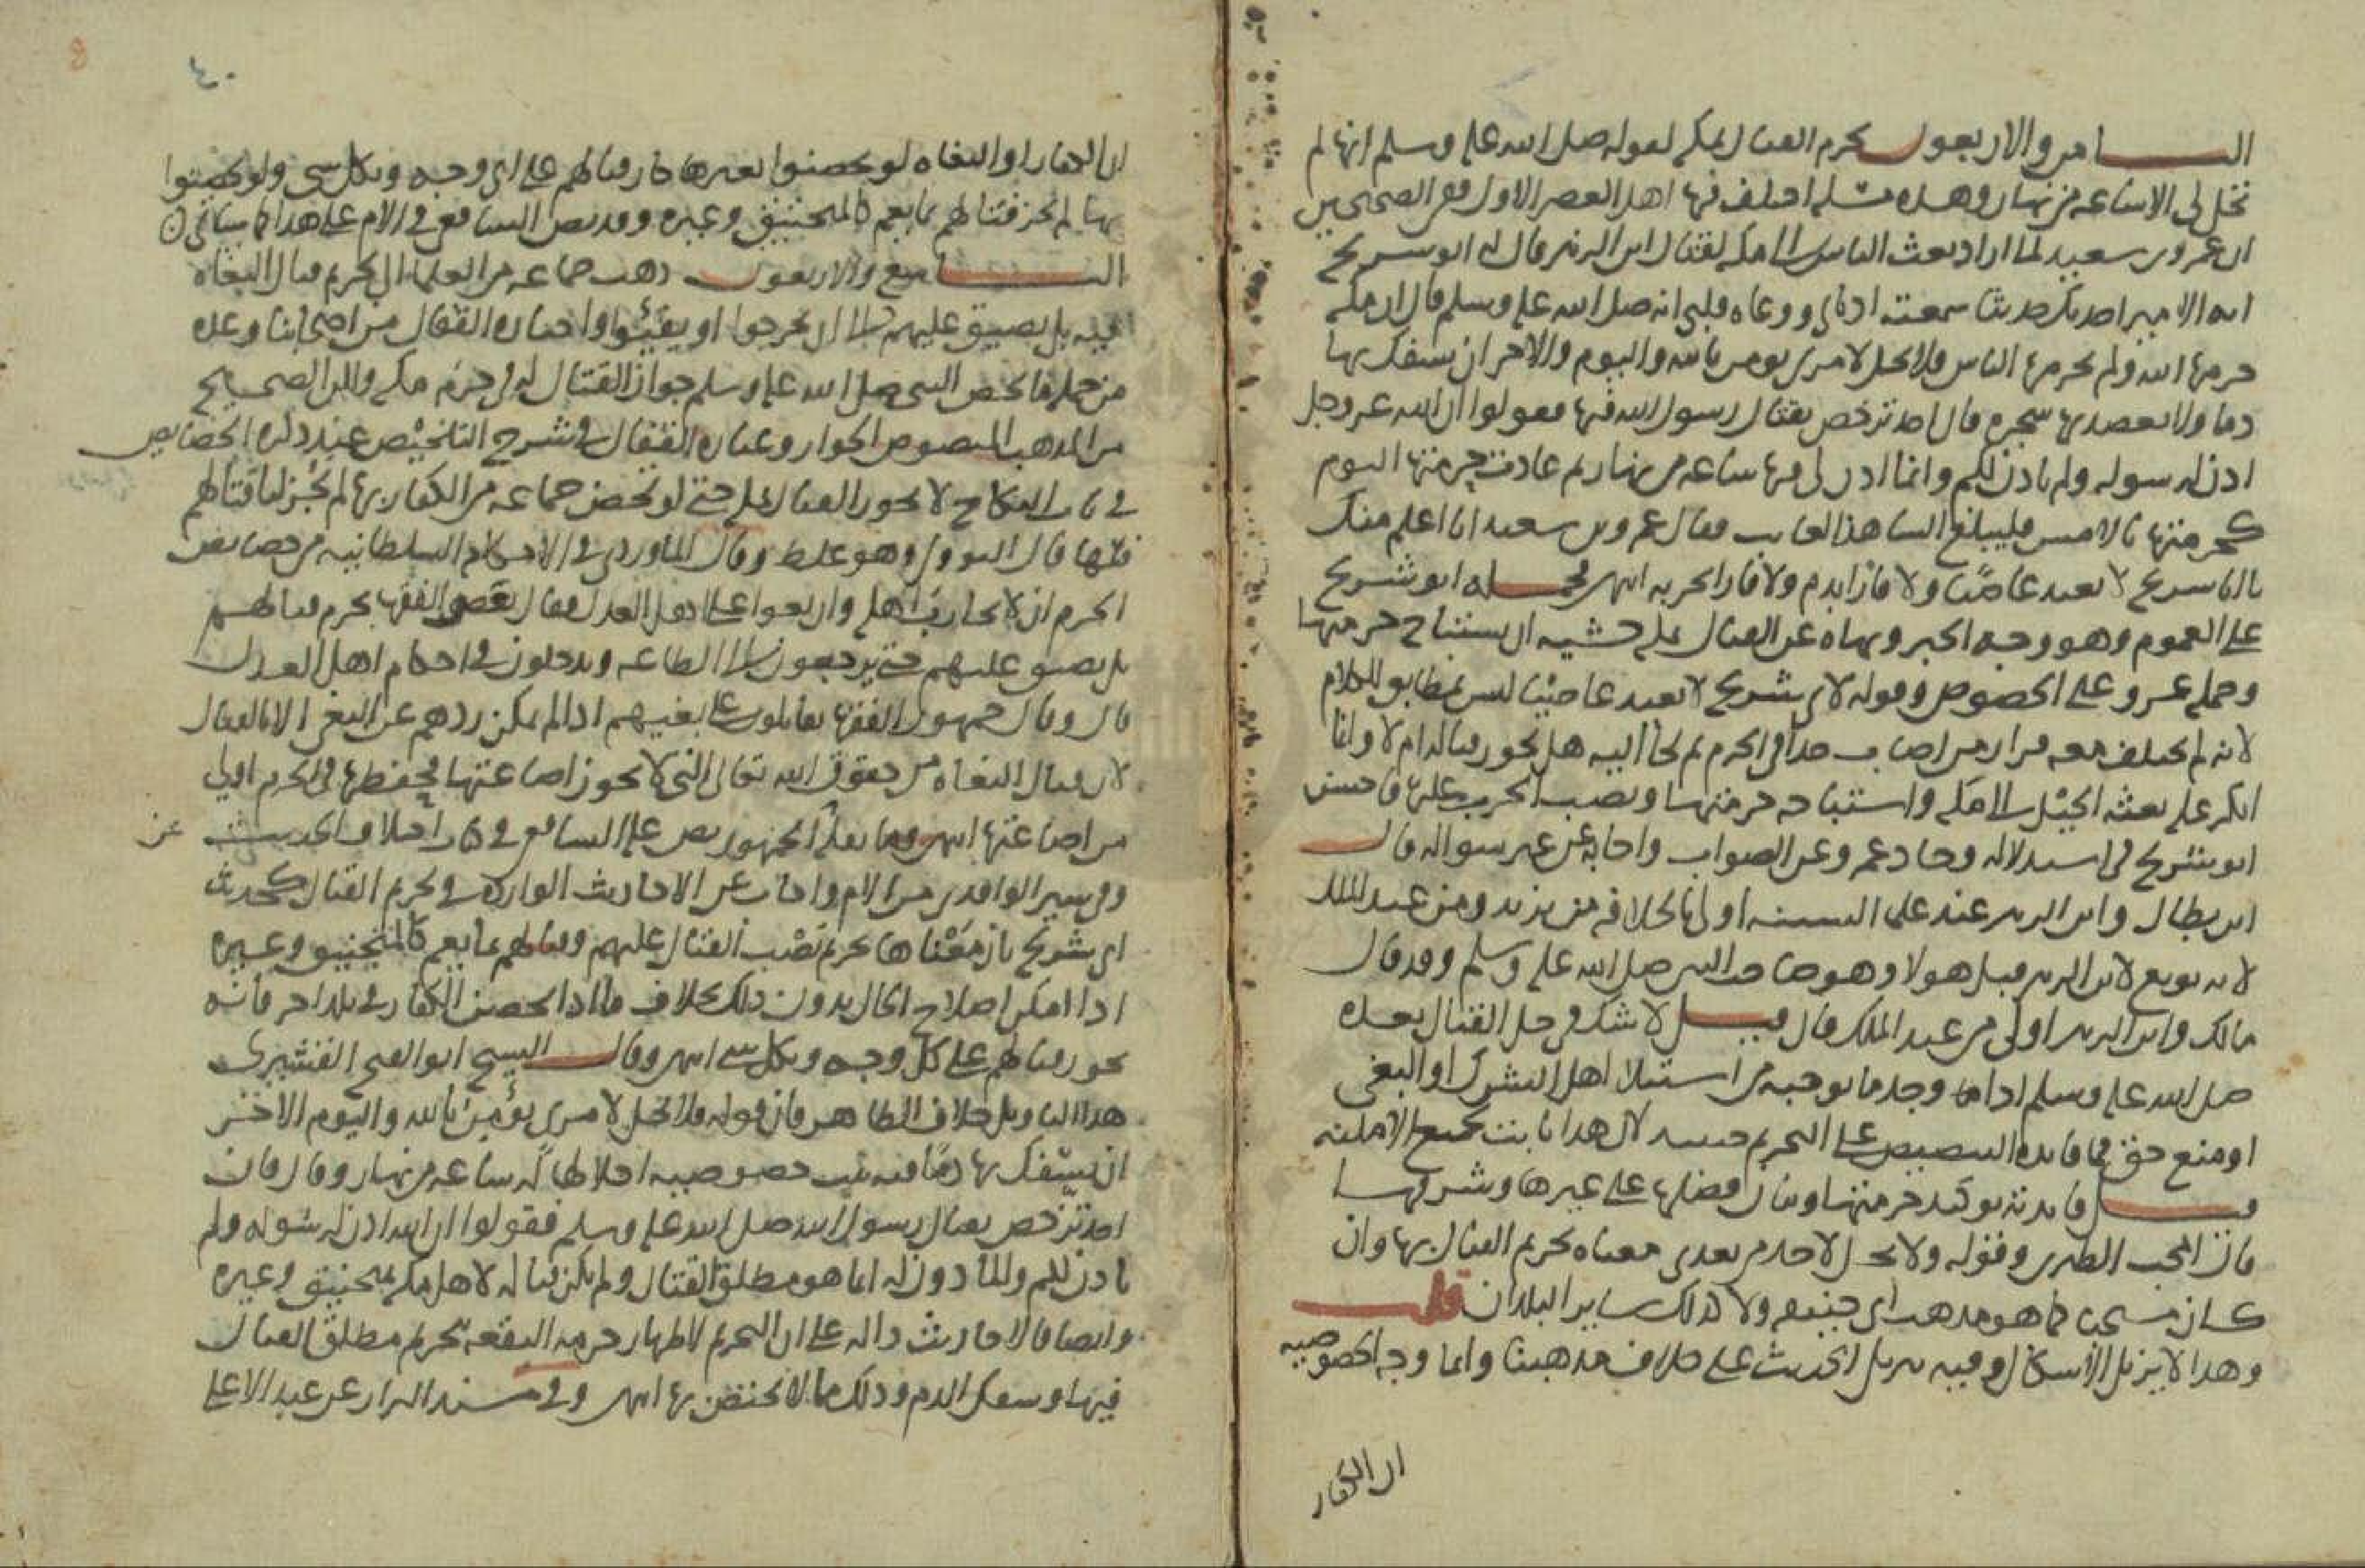 السادس والاربعون يحرم القتال بمكه لقوله صلى الله عليه وسلم انها لم
تحل لى الا ساعه من نهار وهذه مسئله اختلف فيها اهل العصر الاول ففى الصحيحين
ان عمرو بن سعيد لما اراد بعث الناس الى مكه لقتال ابن الزبير قال له ابو شريح
ايها الامير احدثك حديثا سمعته اذناى ووعاه قلبى انه صلى الله عليه وسلم قال ان مكه
حرمها الله ولم يحرمها الناس فلا يحل لامرئ يومن بالله واليوم والاخر ان يسفك بها
دما ولا يعضد بها شجره فان احد ترخص بقتال رسول الله فيها فقولوا ان الله عز وجل
اذن لرسوله ولم ياذن لكم وانما اذن لى فيها ساعه من نهار ثم عادت حرمتها اليوم
كحرمتها بالامس فليبلغ الشاهد الغايب فقال عمرو بن سعيد انا اعلم منك
يا ابا شريح لا تعيذ عاصيا ولا فارا بدم ولا فارا بخربه انتهى فحمله ابو شريح
على العموم وهو وجه الخبر ونهاه عن القتال بمكه خشيه ان يستباح حرمتها
وحمله عمرو على الخصوص وقوله لابى شريح لا تعيذ عاصيا ليس بمطابق للكلام
لانه لم يختلف معه فى ان من اصاب حدا فى الحرم ثم لجا اليه هل يجوز قتله ام لا وانما
انكر عليه بعثه الخيل الى مكه واستباحه حرمتها ونصب الحرب عليها فاحسن
ابو شريح فى استدلاله وحاد عمرو عن الصواب واجابه عن غير سواله قال
ابن بطال وابن الزبير عند علما السنه اولى بالخلافه من يزيد ومن عبد الملك
لانه بويع لابن الزبير قبل هولا وهو صاحب النبى صلى الله عليه وسلم وقد قال
مالك وابن الزبير اولى من عبد الملك فان قيل لا شك فى حل القتال بعده
صلى الله عليه وسلم اذا وجد ما يوجبه من استيلا اهل الشرك او البغى
او منع حق فما فايده التنصيص على التحريم حينيذ لان هذا ثابت لجميع الامكنه
قيل فايدته توكيد حرمتها وبيان فضلها على غيرها وشرفها
قال المحب الطبرى وقوله ولا يحل لاحد من بعدى معناه تحريم القتال بها وان
كان مستحقا كما هو مذهب ابى حنيفه ولا كذلك ساير البلدان قلت
وهذا لا يزيل الاشكال وفيه تنزيل الحديث على خلاف مذهبنا وانما وجه الخصوصيه
ان الكفار
٤٠
ان الكفار او البغاه لو تحصنوا بغيرها جاز قتالهم على اى وجه وبكل شى ولو تحصنوا
بها لم يجز قتالهم بما يعم كالمنجنيق وغيره وقد نص الشافعى فى الام على هذا كما سياتى
السابع والاربعون ذهب جماعه من العلما الى تحريم قتال البغاه
فيه بل يضيق عليهم الى ان يخرجوا او يفيئوا واختاره القفال من اصحابنا وعده
من جمله ما خص النبى صلى الله عليه وسلم جواز القتال له فى حرم مكه ولكن الصحيح
من المذهب المنصوص الجواز وعباره القفال فى شرح التلخيص عند ذكره الخصايص
فى باب النكاح لا يجوز القتال بمكه حتى لو تحصن جماعه من الكفار بها لم يجز لنا قتالهم
فيها قال النووى وهو غلط وقال الماوردى فى الاحكام السلطانيه من خصايص
الحرم ان لا يحارب اهله وان بغوا على اهل العدل فقال بعض الفقها يحرم قتالهم
بل يضيق عليهم حتى يرجعون الى الطاعه ويدخلون فى احكام اهل العدل
قال وقال جمهور الفقها يقاتلون على بغيهم اذا لم يمكن ردهم عن البغى الا بالقتال
لان قتال البغاه من حقوق الله تعالى التى لا يجوز اضاعتها فحفظها فى الحرم اولى
من اضاعتها انتهى وما نقله الجمهور نص عليه الشافعى فى كتاب اختلاف الحديث
وفى سير الواقدى من الام واجاب عن الاحاديث الوارده فى تحريم القتال كحديث
ابى شريح بان معناها تحريم نصب القتال عليهم وقتالهم بما يعم كالمنجنيق وغيره
اذا امكن اصلاح الحال بدون ذلك بخلاف ما اذا تحصن الكفار فى بلد اخر فانه
يجوز قتالهم على كل وجه وبكل شى انتهى وقال الشيخ ابو الفتح القشيرى
هذا التاويل خلاف الظاهر فان قوله فلا يحل لامرئ يؤمن بالله واليوم الاخر
ان يسفك بها دما فيه تثبت خصوصيه احلالها له ساعه من نهار وقال فان
احد ترخص بقتال رسول الله صلى الله عليه وسلم فقولوا ان الله اذن لرسوله ولم
ياذن لكم والماذون له انما هو مطلق القتال ولم يكن قتاله لاهل مكه بمنجنيق وغيره
وايضا فالاحاديث داله على ان التحريم لاظهار حرمه البقعه بتحريم مطلق القتال
فيها وسفك الدم وذلك مما لا يختص بها انتهى وفى مسند البزار عن عبد الاعلى